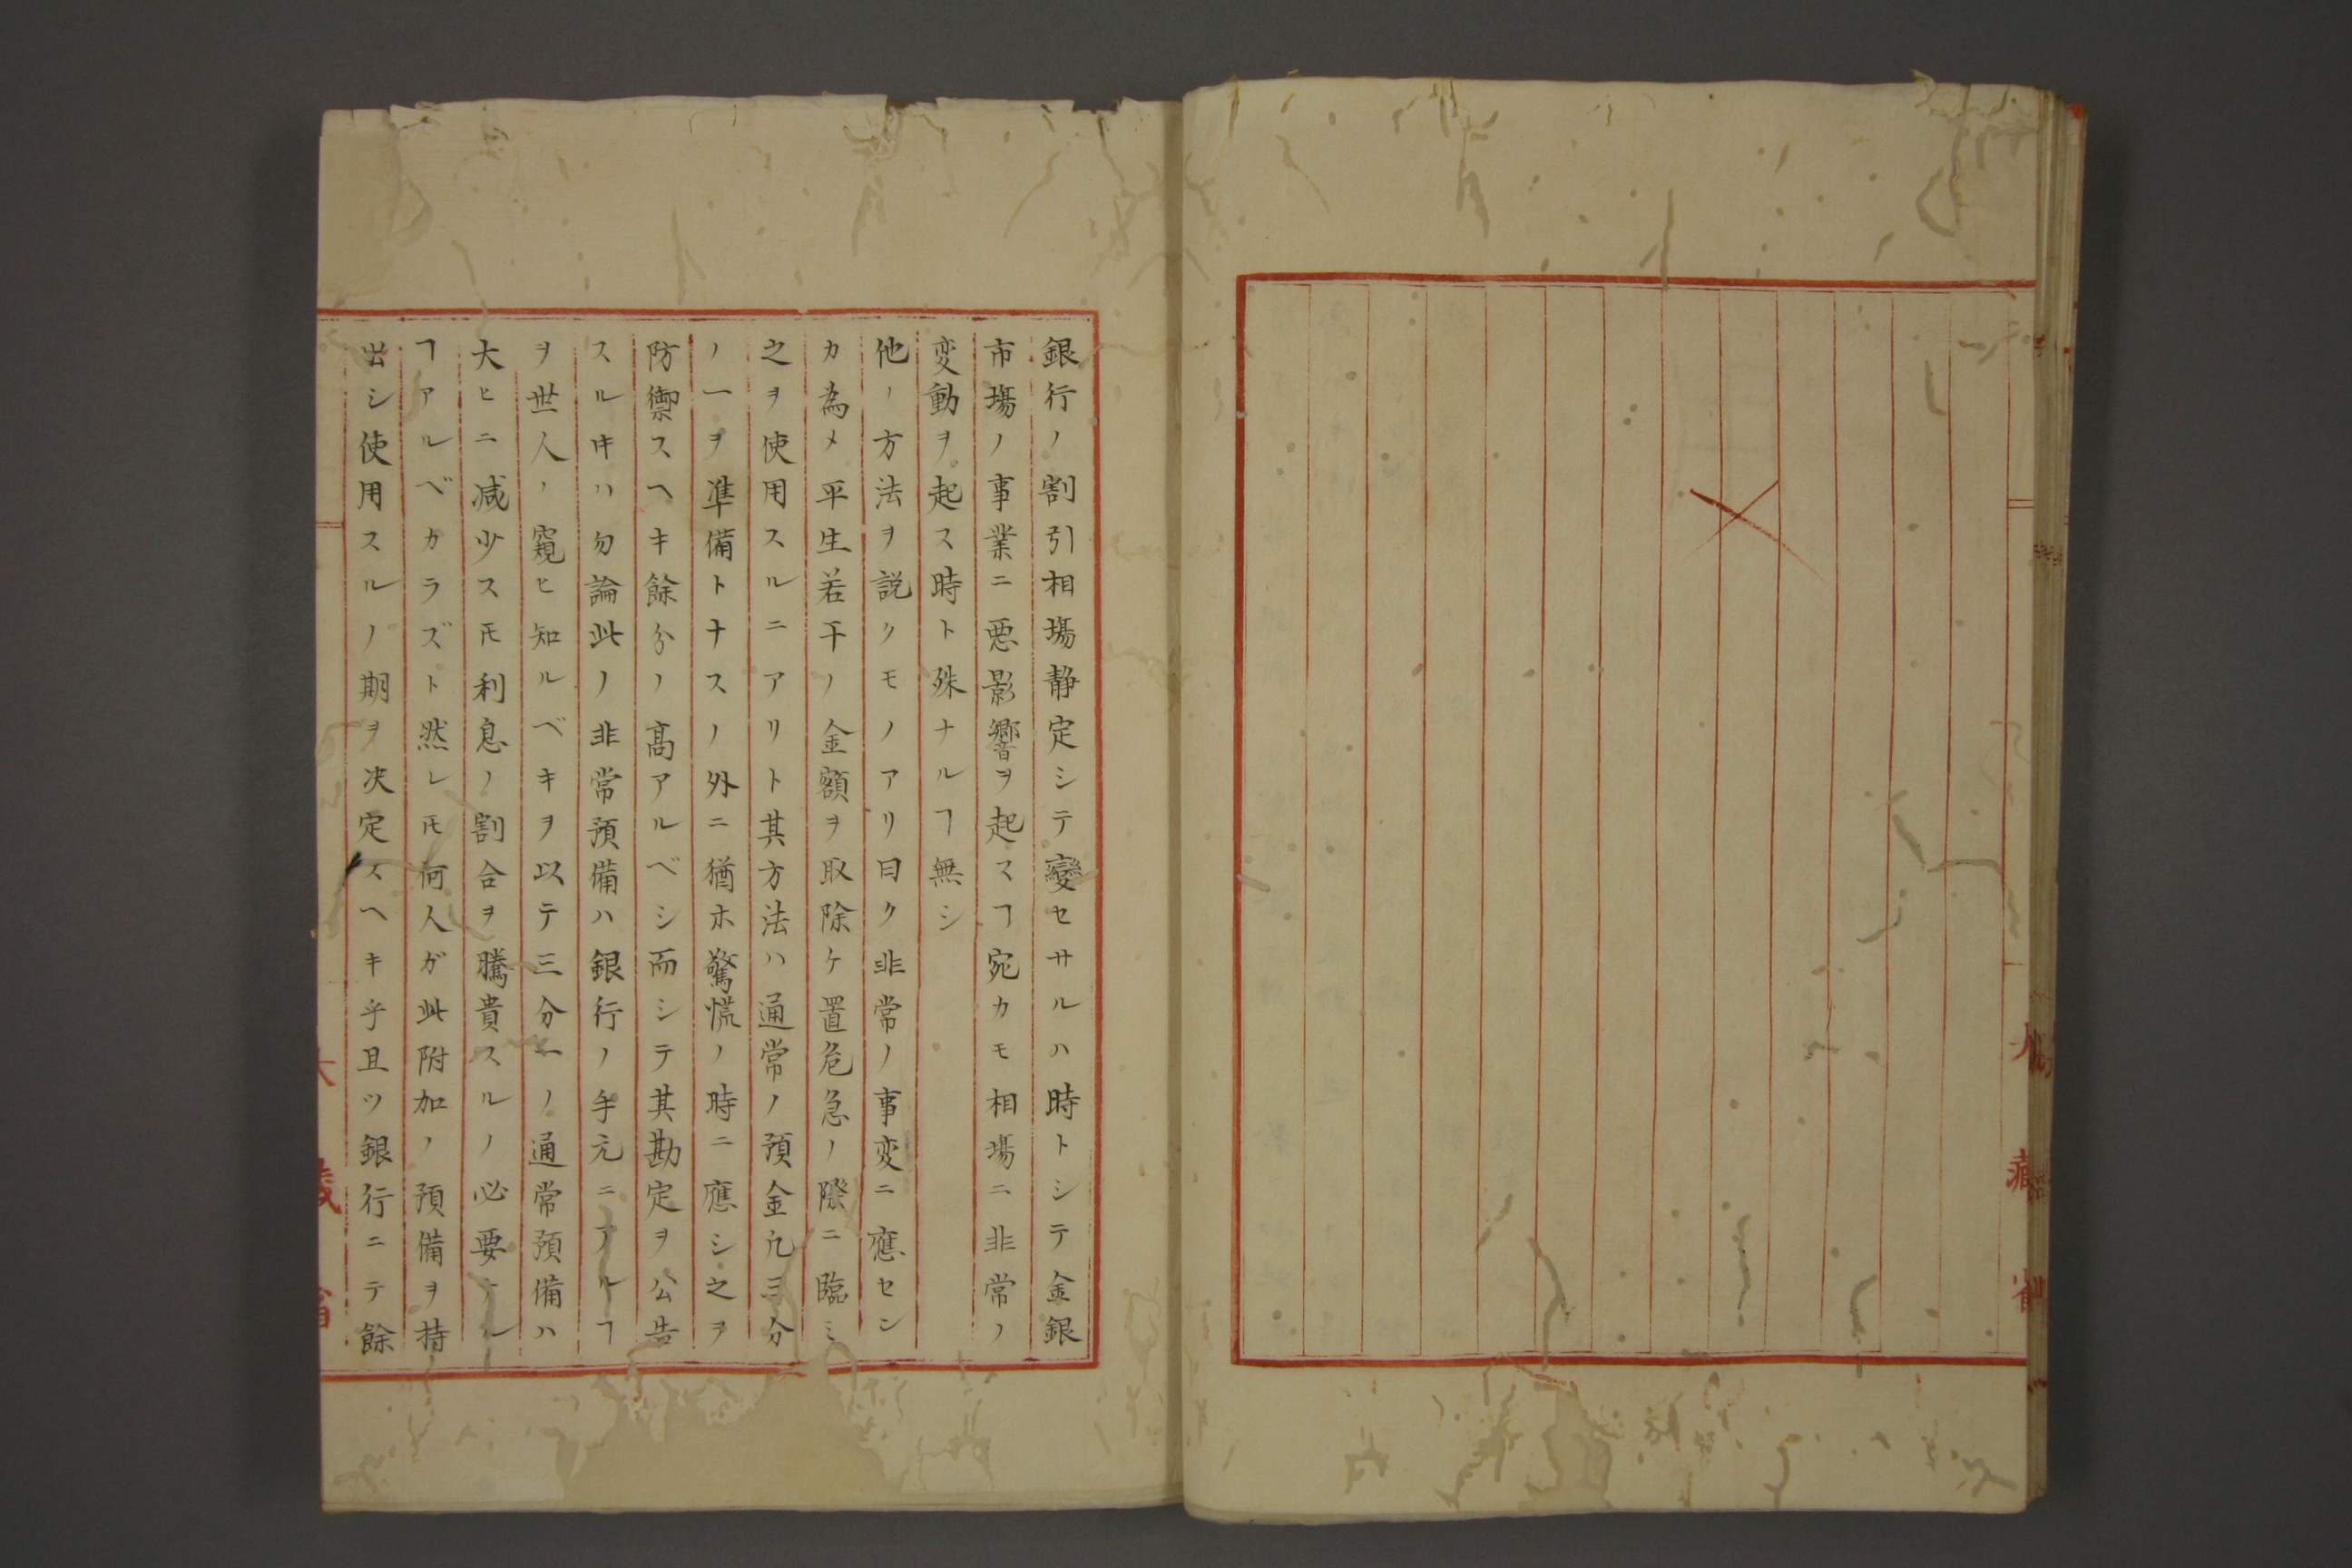 大藏省
銀行ノ割引相塲静定シテ變セサルハ時トシテ金銀
市塲ノ事業ニ悪影響ヲ起スヿ宛カモ相塲ニ非常ノ
変動ヲ起ス時ト殊ナルヿ無シ
他ノ方法ヲ説クモノアリ曰ク非常ノ事変ニ應セン
カ為メ平生若干ノ金額ヲ取除ケ置危急ノ際ニ臨ミ
之ヲ使用スルニアリト其方法ハ通常ノ預金凢三分
ノ一ヲ準備トナスノ外ニ猶ホ驚慌ノ時ニ應シ之ヲ
防禦スヘキ餘分ノ髙アルベシ而シテ其勘定ヲ公告
スル𪜈ハ勿論此ノ非常預備ハ銀行ノ手元ニアルヿ
ヲ世人ノ窺ヒ知ルベキヲ以テ三分一ノ通常預備ハ
大ヒニ减少スモ利息ノ割合ヲ騰貴スルノ必要ナル
ヿアルベカラズト然レ𪜈何人ガ此附加ノ預備ヲ持
出シ使用スルノ期ヲ决定スヘキ乎且ツ銀行ニテ餘